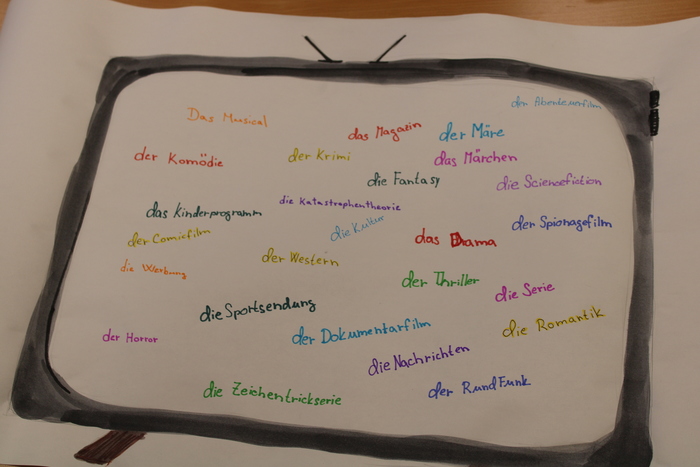 der Abenteuerfilm
Das Musical
das Magazin
der Märe
der Komödie
der Krimi
das Märchen
die Fantasy
die Sciencefiction
die Katastrophentheorie
das Kinderprogramm
die Kultur
der Spionagefilm
der Comicfilm
das Drama
der Western
die Werbung
der Thriller
die Serie
die Sportsendung
die Romantik
der Horror
der Dokumentarfilm
die Nachrichten
die Zeichentrickserie
der RundFunk